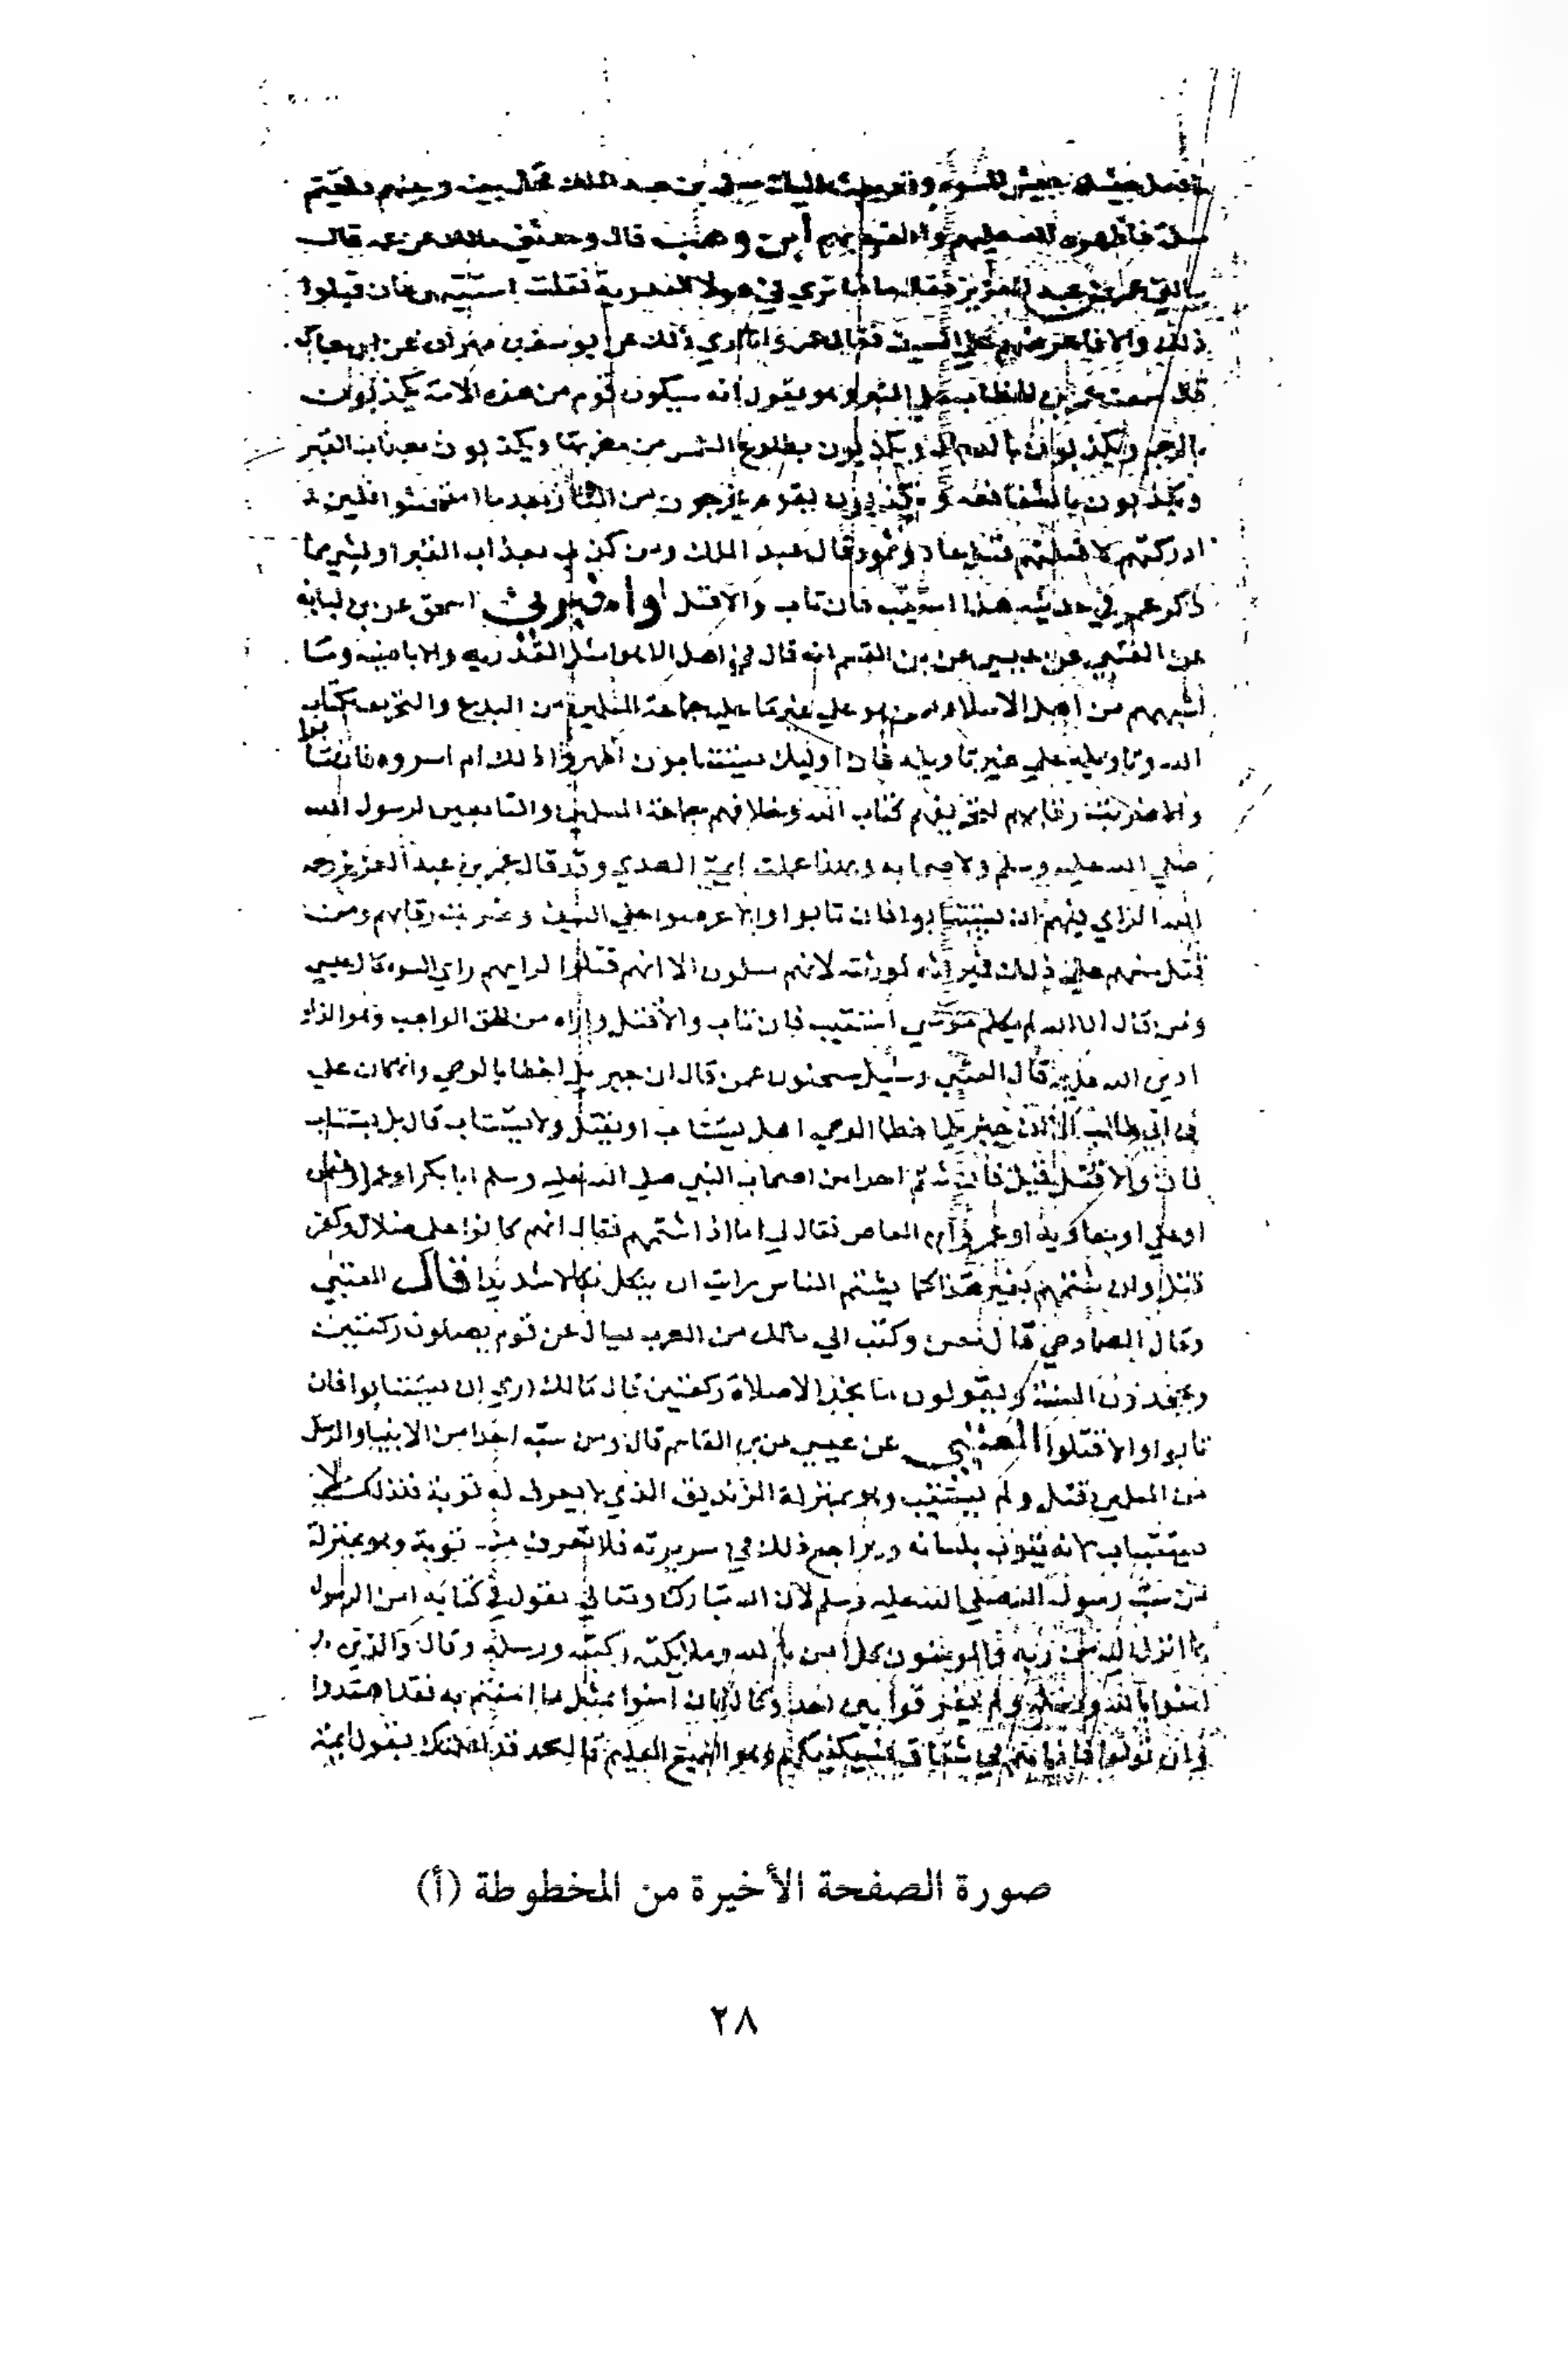 قال وحدثني مالك عن عمه قال
عمر بن عبد العزيز فقال ما ترى في هولا القدرية فقلت استتبهم فان قبلوا
ذلك والا فاعرضهم على السيف فقال عمر وانا ارى ذلك عن يوسف بن مهران عن ابن عباس
قال سمعت عمر بن الخطاب على المنبر وهو يقول انه سيكون قوم من هذه الامة يكذبون
بالرجم ويكذبون بالدجال ويكذبون بطلوع الشمس من مغربها ويكذبون بعذاب القبر
ويكذبون بالشفاعة ويكذبون بقوم يخرجون من النار بعد ما امتحشوا فلين
ادركتهم لاقتلنهم قتل عاد وثمود قال عبد الملك ومن كذب بعذاب القبر او بشي مما
ذكر عمر في حديثه هذا استتيب فان تاب والا قتل اسحق عن بن لبابة
عن العتبي عن عيسى عن بن القسم انه قال في اهل الاهوا مثل القدريه والاباضيه وما
اشبههم من اهل الاسلام ممن هو على غير ما عليه جماعة المسلمين من البدع والتحريف لكتاب
الله وتاويله على غير تاويله فان اوليك يستتابون اظهروا ذلك ام اسروه فان تابوا
والا ضربت رقابهم لتحريفهم كتاب الله وخلافهم جماعة المسلمين والتابعين لرسول الله
صلى الله عليه وسلم ولاصحابه وبهذا عملت ايمة الهدي وقد قال عمر بن عبد العزيز رحمه
الله الراي فيهم ان يستتابوا فان تابوا والا عرضوا على السيف وضربت رقابهم ومن
قتل منهم على ذلك فميراثه لورثته لانهم مسلمون الا انهم قتلوا لرايهم راي السوء قال عيسى
ومن قال ان الله لم يكلم موسى استتيب فان تاب والا قتل واراه من الحق الواجب وهو الذي
ادين الله عليه قال العتبي وسيل سحنون عمن قال ان جبريل اخطا بالوحي وانما كان علي
بن ابي طالب الا ان جبريل اخطا الوحي اهل يستتاب او يقتل ولا يستتاب قال بل يستتاب
فان والا قتل قيل فان شتم احدا من اصحاب النبي صلى الله عليه وسلم ابا بكر او عمر او عثمن
او علي او معاوية او عمرو بن العاص فقال لي اما اذا شتمهم فقال انهم كانوا على ضلال وكفر
قتل وان شتمهم بغير هذا كما يشتم الناس رايت ان ينكل نكالا شديدا قال العتبي
وقال الصمادحي قال معن وكتب الى مالك من العرب يسال عن قوم يصلون ركعتين
ويجحدون السنة ويقولون ما نجد الا صلاة ركعتين قال مالك ارى ان يستتابوا فان
تابوا والا قتلوا العتبي عن عيسى عن بن القاسم قال ومن سب احدا من الانبيا والرسل
من المسلمين قتل ولم يستتب وهو بمنزلة الزنديق الذي لا يعرف له توبة فلذلك لا
يستتاب لانه يتوب بلسانه ويراجع ذلك في سريرته فلا تعرف منه توبة وهو بمنزلة
من سب رسول الله صلى الله عليه وسلم لان الله تبارك وتعالى يقول في كتابه امن الرسول
بما انزل اليه من ربه والمومنون كل امن بالله وملايكته وكتبه ورسله وقال والذين
امنوا بالله ورسله ولم يفرقوا بين احد وقال فان امنوا بمثل ما امنتم به فقد اهتدوا
وان تولوا فانما هم في شقاق فسيكفيكهم الله وهو السميع العليم
صورة الصفحة الأخيرة من المخطوطة (أ)
٢٨